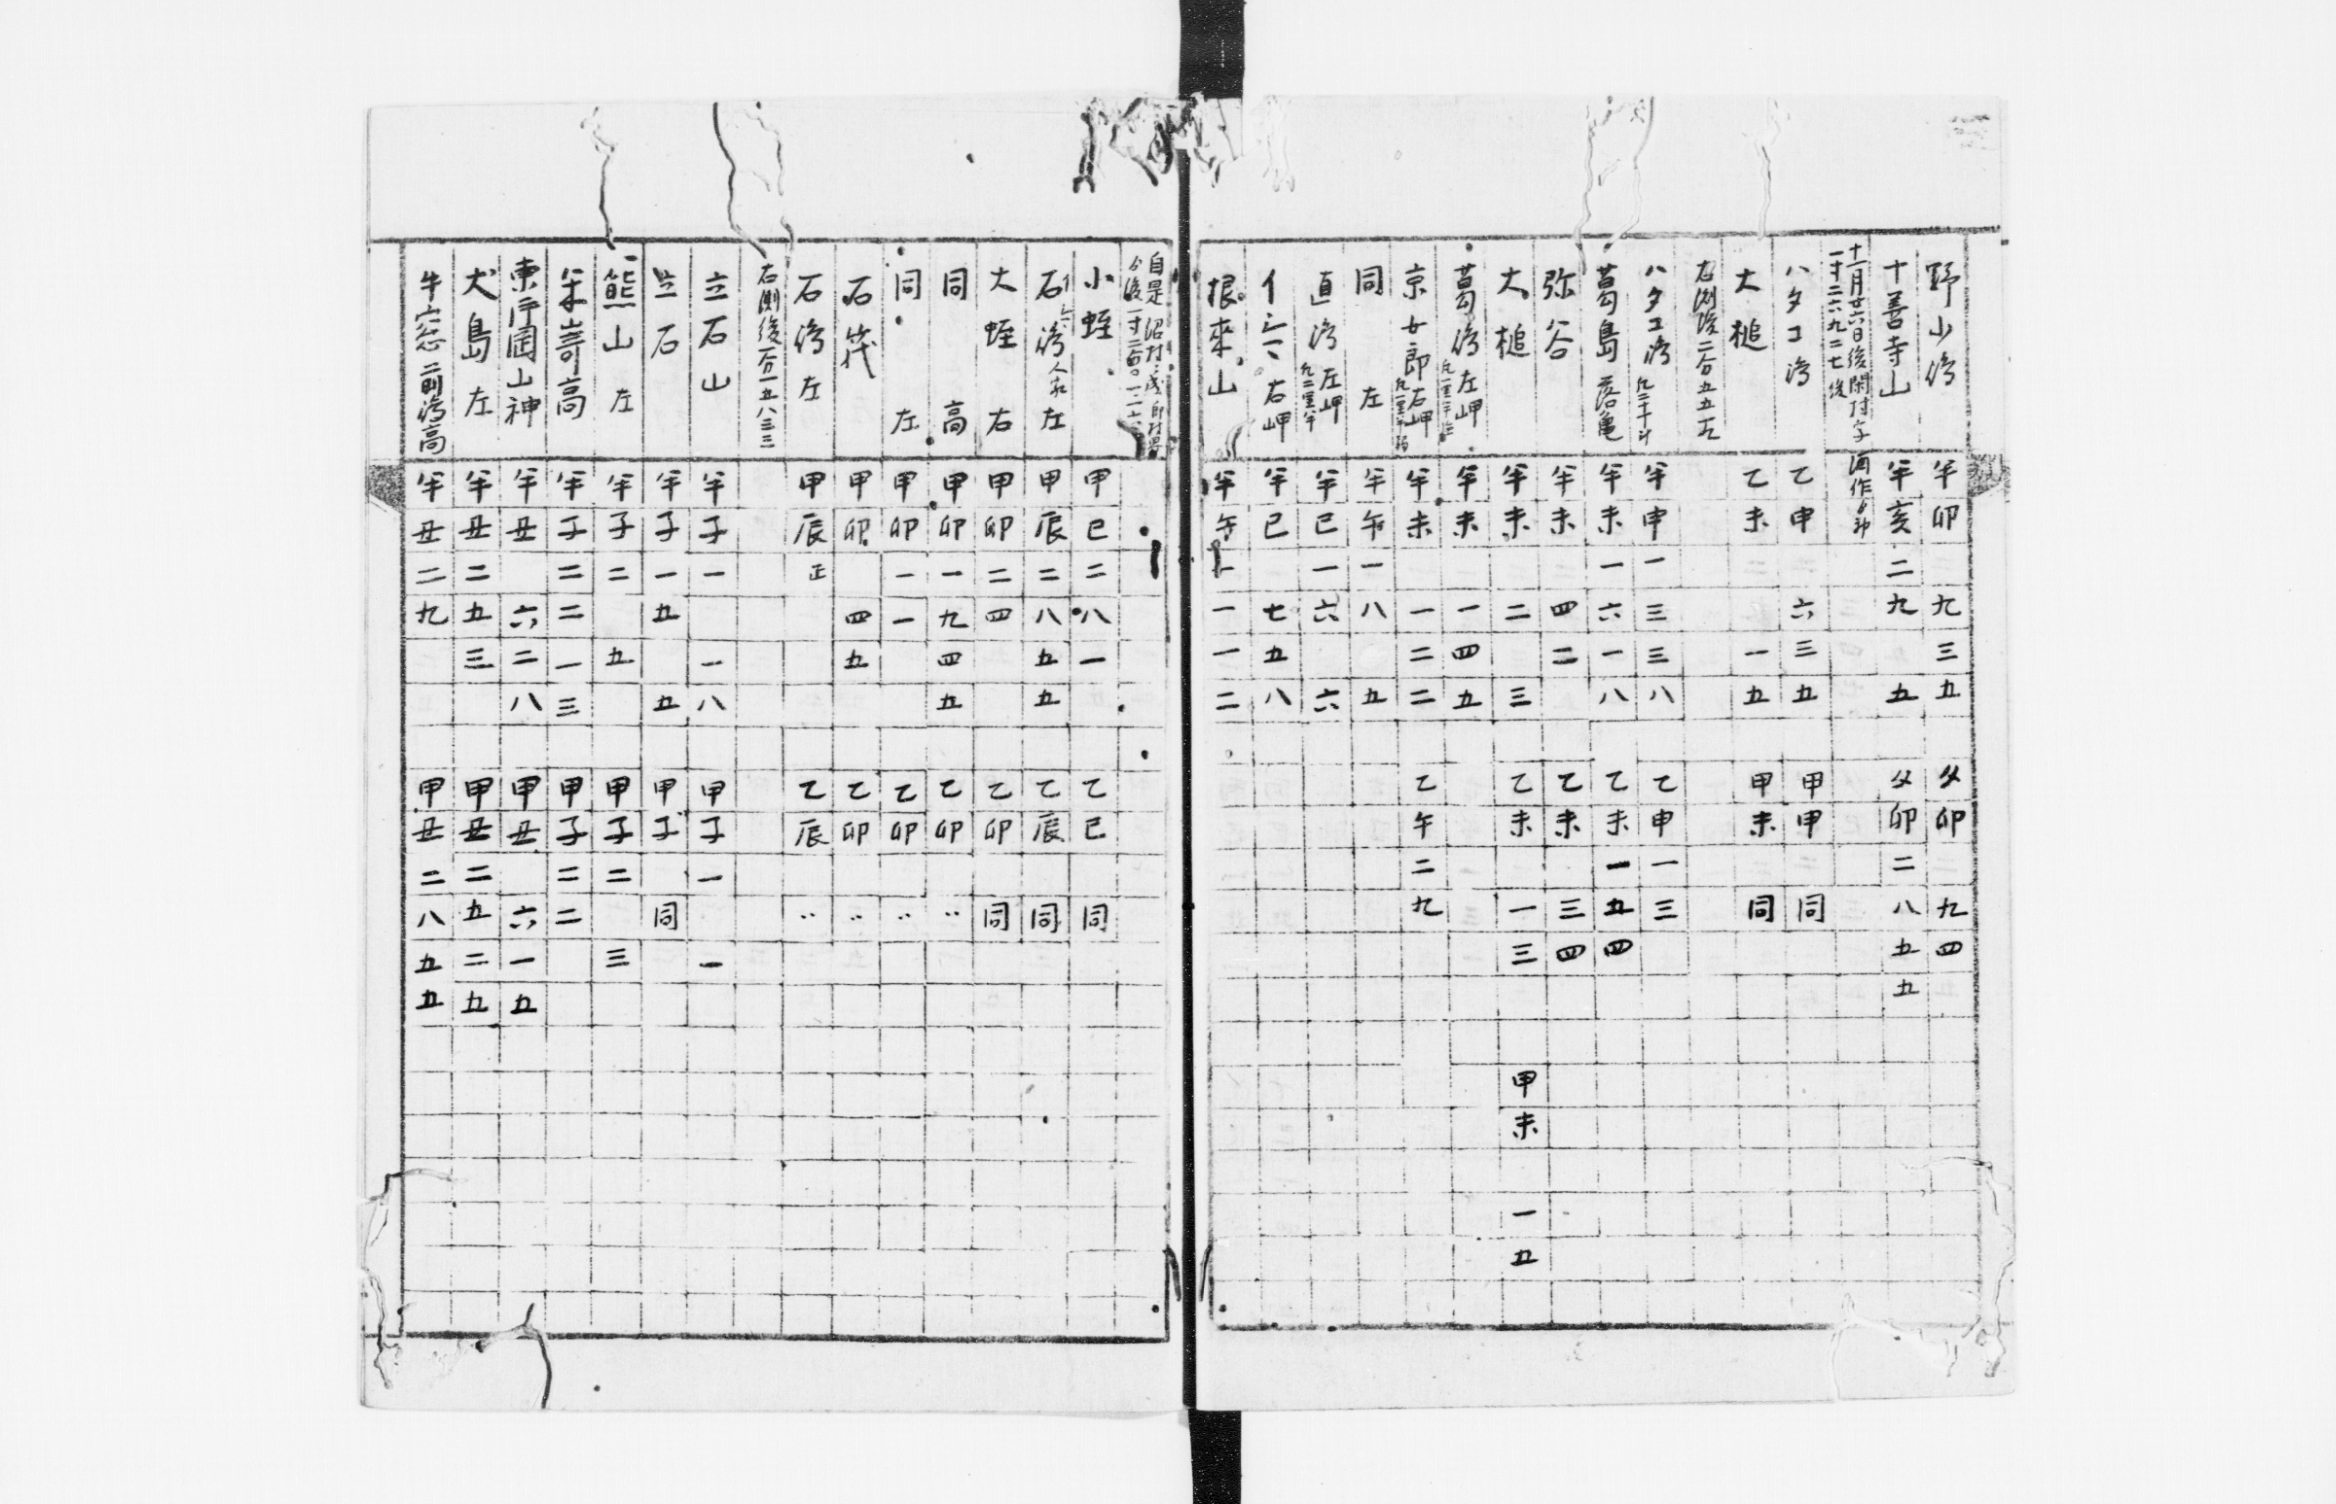 野山湾 半卯 九三五 㚈卯 九四
十善寺山 半亥二九 五 㚈卯二八五五
十一月廿六日後閑村字
一寸二六九二七後
ハタコ湾 乙申 六三五 甲申 同
大槌 乙未 一五 甲未 同
右測後二分五五五
ハタコ湾 半申一三三八 乙申一三
葛島 落亀 半未一六一八 乙未一五四
弥谷 半未 四二 乙未 三四
大槌 半未 二 三 乙未 一三 甲未 一五
葛湾左岬 半未 一四五
京女郎右岬 半未 一二二 乙午二九
同 左 半午一八 五
直湾左岬 半巳一六 六
右岬 半巳 七五八
根来山 半午一一一二
小蛭 甲巳二八一 乙巳 同
石湾 左 甲辰二八五五 乙辰 同
大蛭 右 甲卯二四 乙卯 同
同 高 甲卯一九四五 乙卯 〃
同 左 甲卯一一 乙卯 〃
石茂 甲卯 四五 乙卯 〃
石湾 左 甲辰正 乙辰 〃
右測後一分一五八三三
立石山 半子一 一八 甲子一 一
立石 半子一五 五 甲子 同
熊山 左 半子二 五 甲子二 三
半嵜高 半子二二一三 甲子二二
東片岡山神 半丑 六二八 甲丑 六一五
犬島 左 半丑二五三 甲丑二五二五
牛窓 前湾高 半丑二九 甲丑二八五五